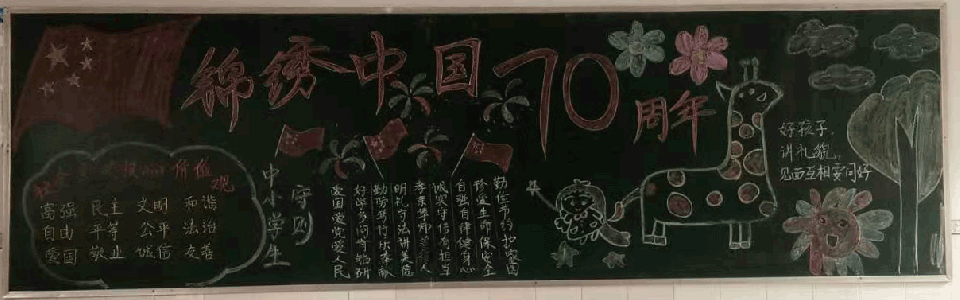 锦绣中国70周年
价值观
富强 民主 文明 和谐
自由 平等 公平 法治
爱国 敬业 诚信 友善
中小学生
守则
爱国爱党爱人民
好学多问肯钻研
勤劳笃行乐奉献
明礼守法讲美德
孝亲尊师善待人
诚实守信有担当
自强自律健身心
珍爱生命保安全
勤俭节约护家园
好孩子,
讲礼貌,
见面互相要问好